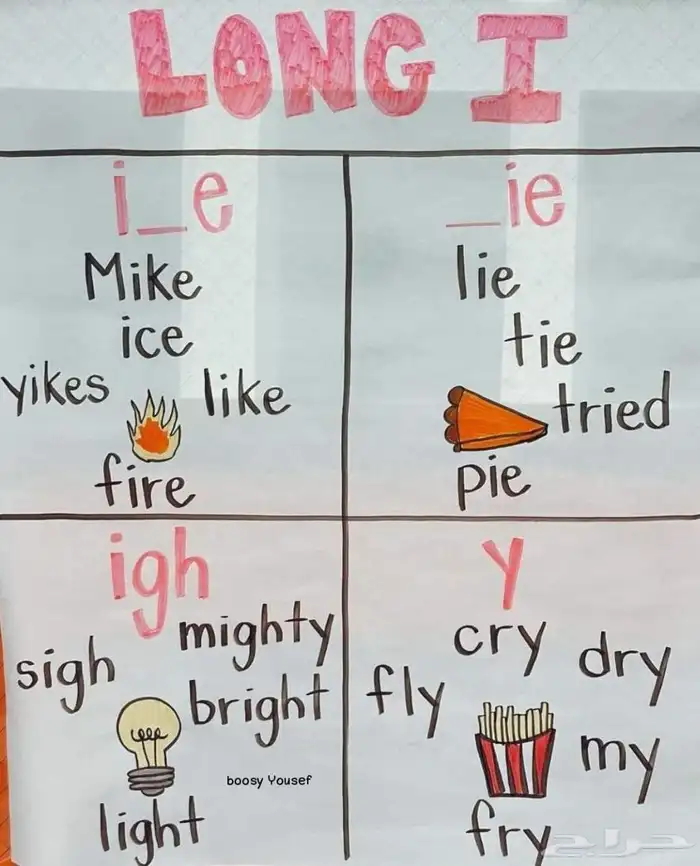 LONG I
i_e
Mike
ice
yikes
like
fire
_ie
lie
tie
tried
pie
igh
mighty
sigh
bright
light
boosy Yousef
y
cry
dry
fly
my
fry
حراج